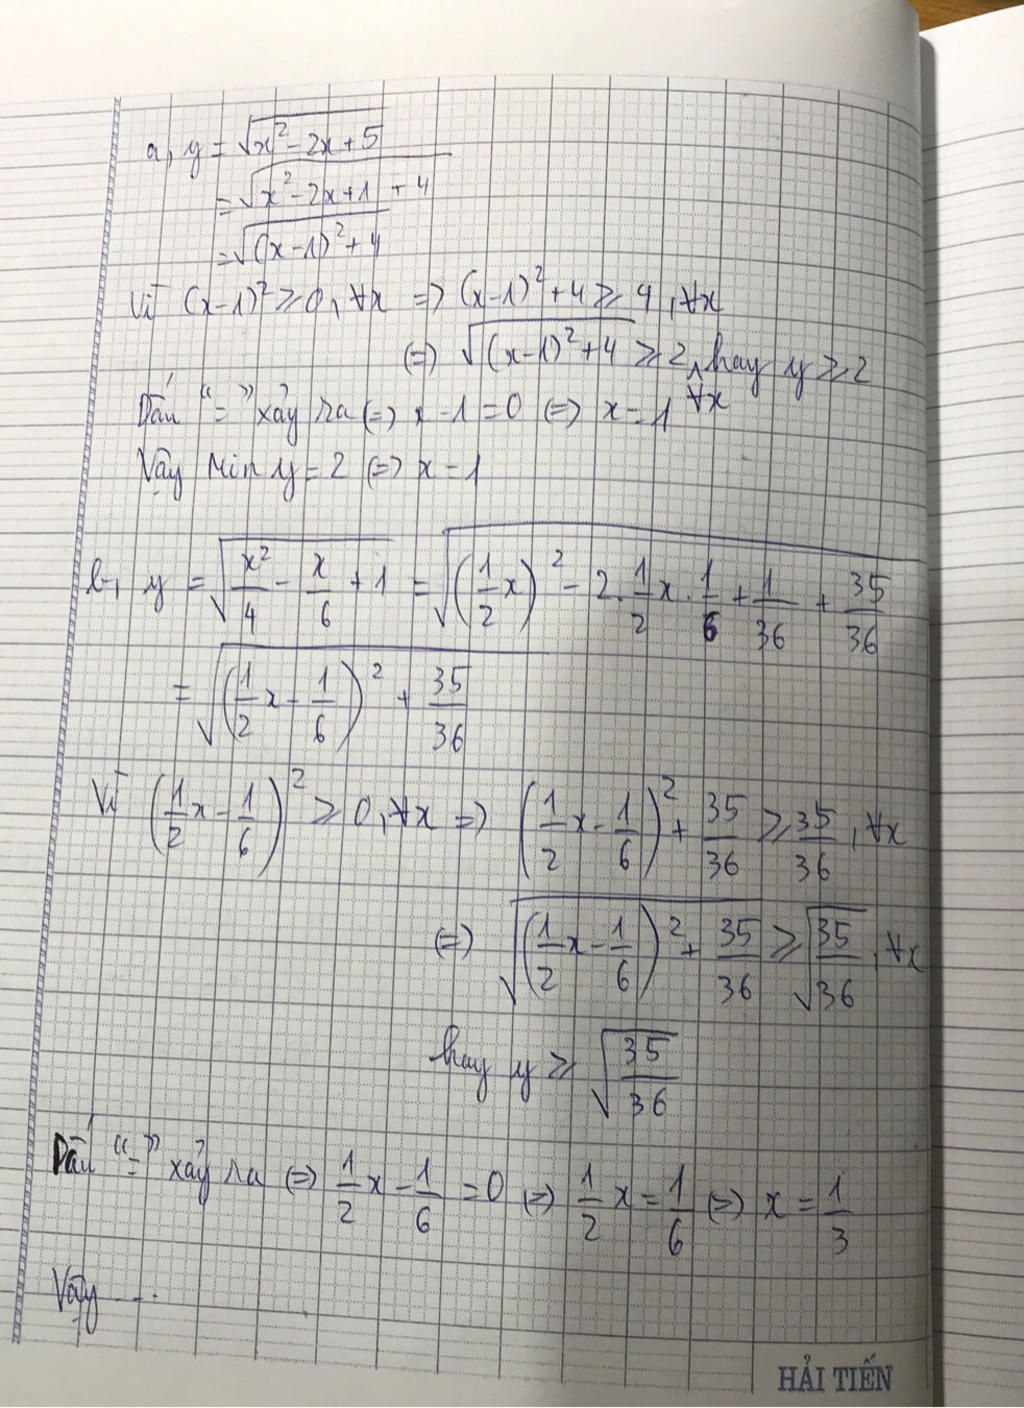 a, y = √(x² - 2x + 5)
= √(x² - 2x + 1 + 4)
= √((x - 1)² + 4)
Vì (x - 1)² ≥ 0, ∀x => (x - 1)² + 4 ≥ 4, ∀x
(=) √((x - 1)² + 4) ≥ 2, ∀x hay y ≥ 2
Dấu "=" xảy ra (=) x - 1 = 0 (=) x = 1
Vậy Min y = 2 (=) x = 1
b, y = √(x²/4 - x/6 + 1) = √((1/2 x)² - 2 . 1/2 x . 1/6 + 1/36 + 35/36)
= √((1/2 x - 1/6)² + 35/36)
Vì (1/2 x - 1/6)² ≥ 0, ∀x => (1/2 x - 1/6)² + 35/36 ≥ 35/36, ∀x
(=) √((1/2 x - 1/6)² + 35/36) ≥ √(35/36), ∀x
hay y ≥ √(35/36)
Dấu "=" xảy ra (=) 1/2 x - 1/6 = 0 (=) 1/2 x = 1/6 (=) x = 1/3
Vậy ...
HẢI TIẾN